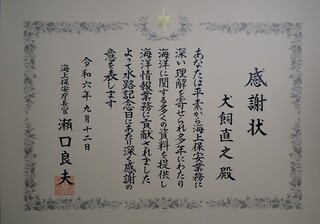 感謝状
犬飼直之殿
あなたは平素から海上保安業務に
深い理解を寄せられ多年にわたり
海洋に関する多くの資料を提供し
海洋情報業務に貢献されました
よって水路記念日にあたり深く感謝の
意を表します
令和六年九月十二日
海上保安庁長官 瀬口良夫